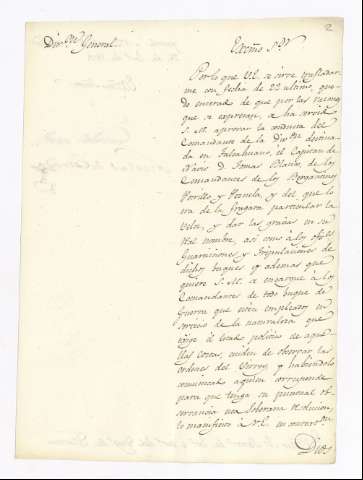 2
Dir.on Gral. General.
Exc̃mo S.or
Por lo que V.E. se sirve trasladar
me con fecha de 23 ultimo, que
do enterado de que por las razones
que se expresan, se ha servido
S.M. aprovar la conducta del
Comandante de la Div.on destina
da en Talcahuano, el Capitan de
Navio D. Tomas Blanco, de los
Comandantes de los Bergantines
Potrillo y Pezuela, y del que lo
era de la fragata particular la
Veloz, y dar las gracias en su
Rl. nombre, asi como á los ofi.s
Guarniciones y tripulaciones de
dichos buques; y ademas que
quiere S.M. se encargue á los
Comandantes de todo buque de
Guerra que esten empleados en
servicio de la naturaleza que
exije el estado politico de aque
llas costas, cuiden de observar las
ordenes del Virrey; y habiendolo
comunicado aquien corresponde
para que tenga su puntual ob
servancia esta soberana resolucion,
lo manifiesto á V.E. en contex.on
Dios